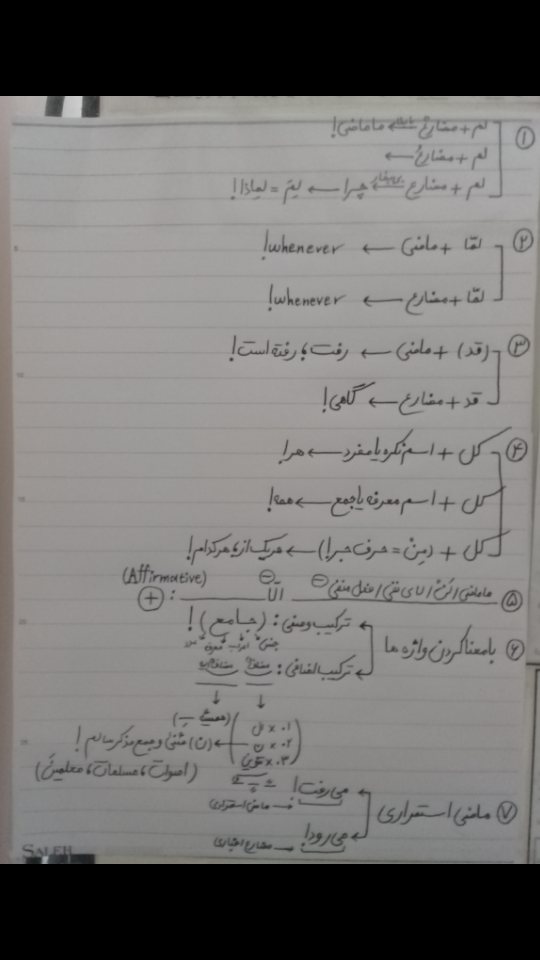 ① لم + مضارعْ ← ماماضی!
لم + مضارعُ ←
لم + مضارع ← چرا ← لِمَ = لماذا!
② لمّا + ماضی ← whenever!
لمّا + مضارع ← whenever!
③ (قد) + ماضی ← رفت یا رفته است!
قد + مضارع ← گاهی!
④ کل + اسم نکره یا مفرد ← هر!
کل + اسم معرفه یا جمع ← همه!
کل + (مِنْ = حرف جر!) ← هریک از یا هرکدام!
⑤ ⊖ الّا ⊖ : ⊕ (Affirmative)
⑥ بامعنا کردن واژه ها
ترکیب وصفی : (جامع)!
ترکیب اضافی : مضاف
۰۱ × ال
۰۲ × ن ← (ن) مُثنی و جمع مذکر سالم!
۰۳ × تنوین
⑦ ماضی استمراری
می رفت! ← ماضی استمراری
می رود! ← مضارع اخباری
SALEH